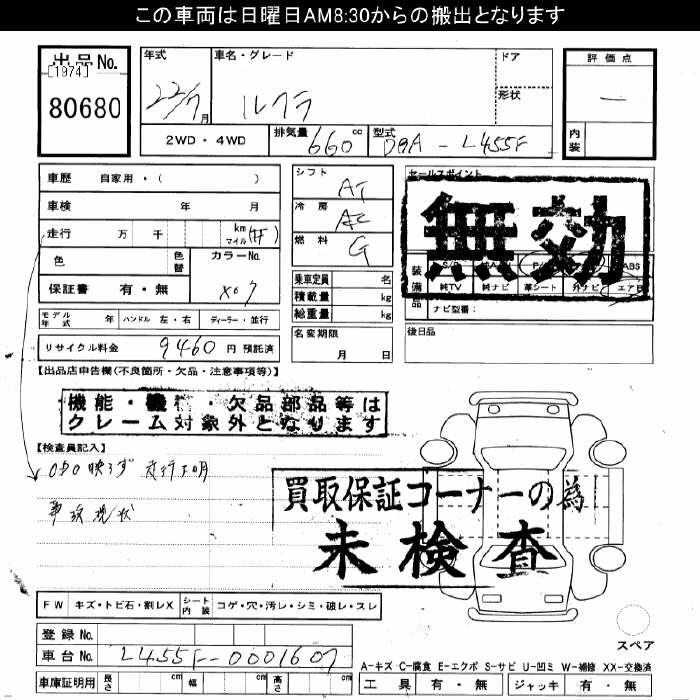 この車両は日曜日AM8:30からの搬出となります
出品No. 年式 車名・グレード ドア 評価点
[1974] 22/7 月 ルクラ 形状 ー
80680 内装
2WD・4WD 排気量 660 cc 型式 DBA-L455F
車歴 自家用・( ) シフト AT セールスポイント
車検 年 月 冷房 AC 無効
走行 万 千 km マイル 燃料 G
色 色替 カラーNo. X07 乗車定員 名 装備品 ABS
保証書 有・無 積載量 kg 純TV 純ナビ 革シート 外ナビ エアB
総重量 kg ナビ型番:
モデル年式 年 ハンドル 左・右 ディーラー・並行 名変期限 月 日 後日品
リサイクル料金 9460 円 預託済
【出品店申告欄(不良箇所・欠品・注意事項等)】
機能・機 ・欠品部品等は
クレーム対象外となります
【検査員記入】
ODO映らず 走行不明
事故現状
買取保証コーナーの為
未検査
FW キズ・トビ石・割レX シート内装 コゲ・穴・汚レ・シミ・破レ・スレ
登録No. スペア
車台No. L455F-0001607
A-キズ C-腐食 E-エクボ S-サビ U-凹ミ W-補修 XX-交換済
車庫証明用 長さ cm 幅 cm 高さ cm 工具 有・無 ジャッキ 有・無